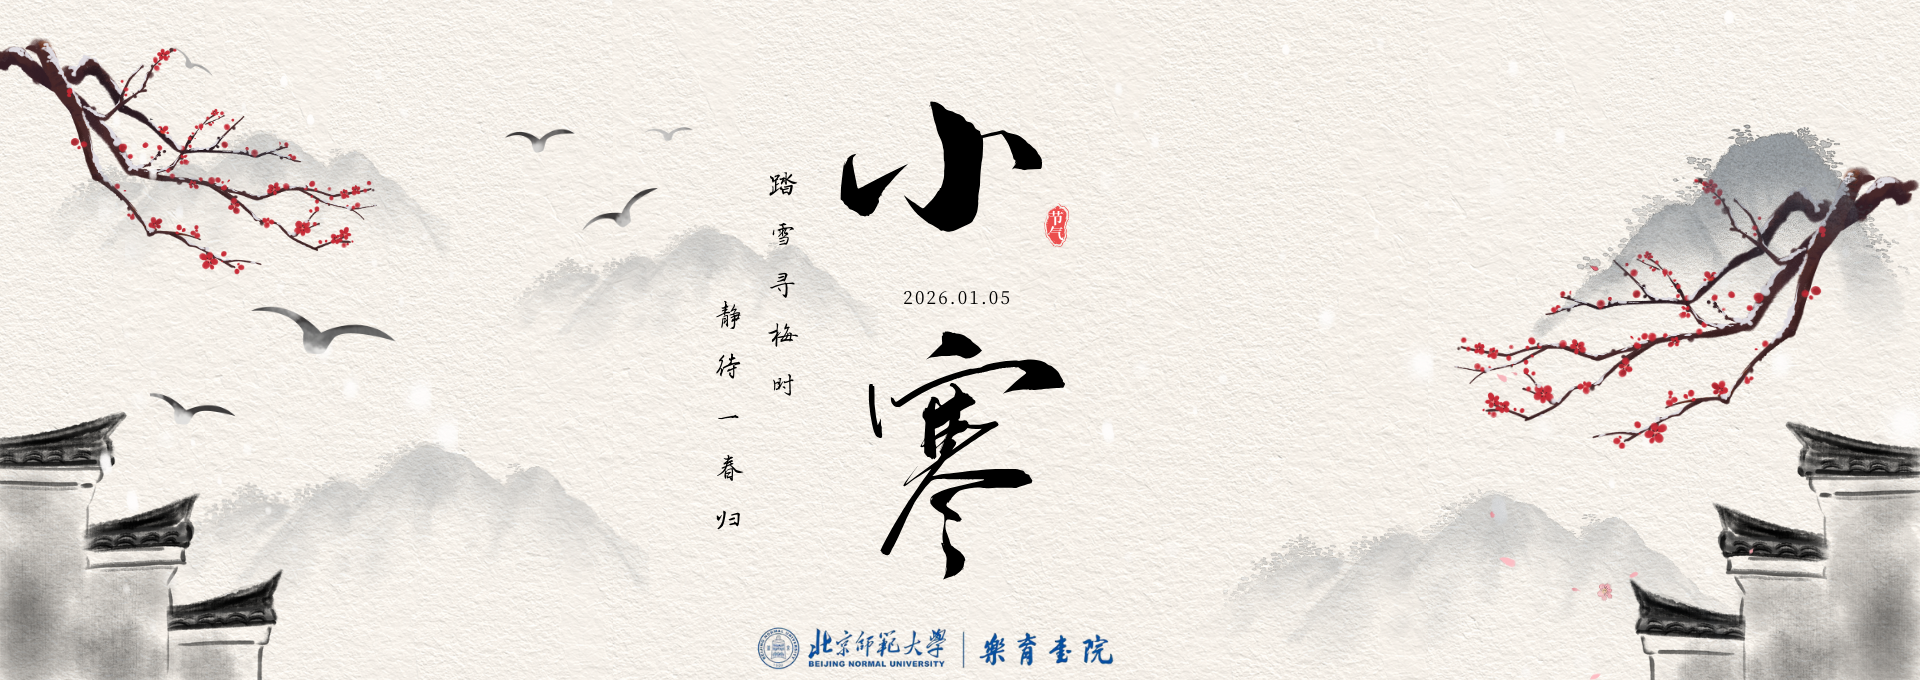 小寒
节气
2026.01.05
踏雪寻梅时
静待一春归
北京师范大学
BEIJING NORMAL UNIVERSITY
樂育書院